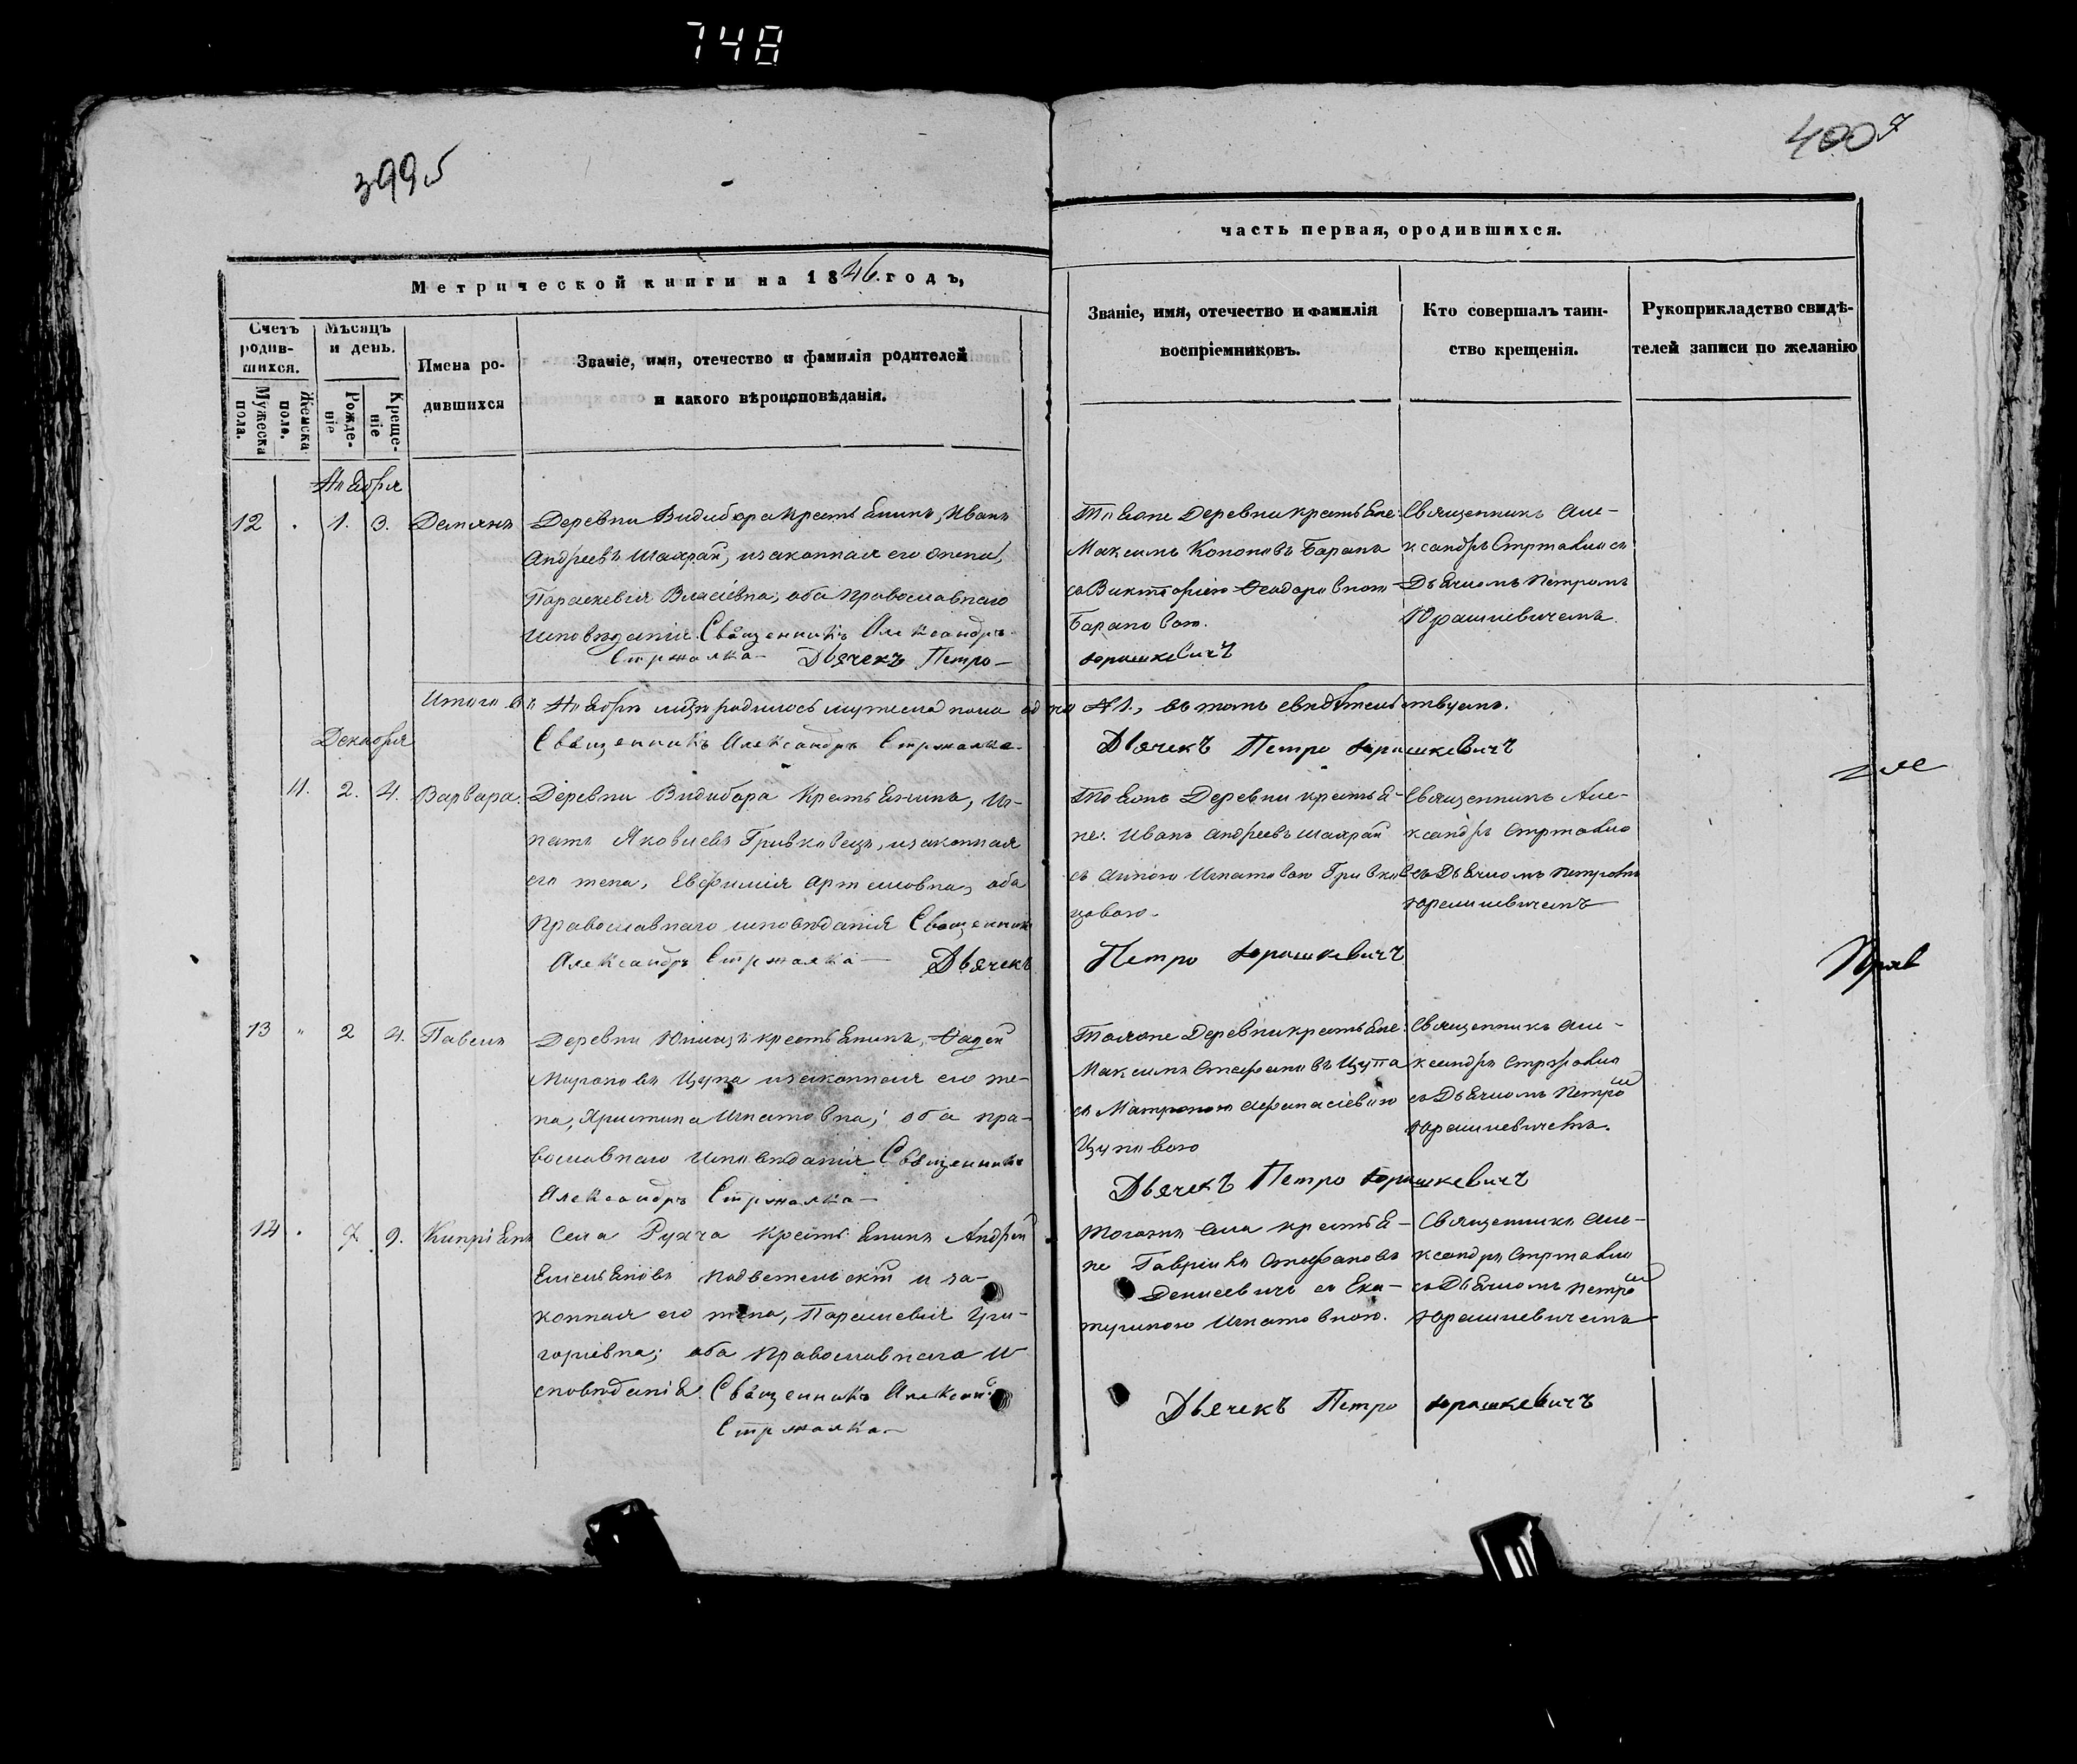 748
399 б
400 7
Метрической книги на 1846. годъ,
часть первая, ородившихся.
Счетъ родив-шихся.
Мужеска пола.
Женска пола.
Мѣсяцъ и день.
Рожде-ніе
Креще-ніе
Имена ро-
дившихся
Званіе, имя, отечество и фамилія родителей
и какого вѣроисповѣданія.
Званіе, имя, отечество и фамилія
воспріемниковъ.
Кто совершалъ таин-
ство крещенія.
Рукоприкладство свидѣ-
телей записи по желанію
Ноября
12 1. 3. Демянъ
Деревни Видибора крестьянинъ, Иванъ
Андреевъ Шахрай, изаконная его жена,
Параскевія Власіевна; оба православнаго
исповѣданія. Священникъ Александръ
Стржалка— Дьячекъ Петро—
Тояже Деревни крестьяне
Максимъ Кононовъ Баранъ
съ Викторіею Ѳеодоровною
Барановою.
Юрашкевичъ
Священникъ Але-
ксандръ Стржалка съ
Дьячкомъ Петромъ
Юрашкевичемъ
Итого въ Ноябрѣ родилось мужеска пола одно № 1., въ томъ свидѣтельствуемъ.
Священникъ Александръ Стржалка— Дьячекъ Петро Юрашкевичъ
Декабря
11. 2. 4. Варвара.
Деревни Видибора крестьянинъ, Иг-
натъ Яковлевъ Гривковецъ, изаконная
его жена, Евфимія Артемовна, оба
Православнаго исповѣданія Священникъ
Александръ Стржалка— Дьячекъ
Тояжъ Деревни крестья-
не: Иванъ Андреевъ Шахрай
съ Анною Игнатовою Гривков-
цовою.
Петро Юрашкевичъ
Священникъ Але-
ксандръ Стржалка
съ Дьячкомъ Петромъ
Юрашкевичемъ
13 " 2 4. Павелъ
Деревни крестьянинъ, Ѳадей
Мироновъ Цупа изаконная его же-
на, Христина Игнатовна; оба пра-
вославнаго исповѣданія Священникъ
Александръ Стржалка—
Тояже Деревни крестьяне:
Максимъ Стефановъ Цупа
съ Матроною Афанасіевою
Цуповою
Дьячекъ Петро Юрашкевичъ
Священникъ Але-
ксандръ Стржалка
съ Дьячкомъ Петромъ
Юрашкевичемъ.
14 7. 9. Кипріянъ
Села Рухча крестьянинъ Андрей
Емельяновъ и за-
конная его жена, Параскевія Гри-
горіевна; оба Православнаго и-
сповѣданія. Священникъ Александ:
Стржалка—
Тогожъ Села крестья-
не Гавріилъ Стефановъ
Денисевичъ съ Ека-
териною Игнатовною.
Священникъ Але-
ксандръ Стржалка
съ Дьячкомъ Петромъ
Юрашкевичемъ
Дьячекъ Петро Юрашкевичъ